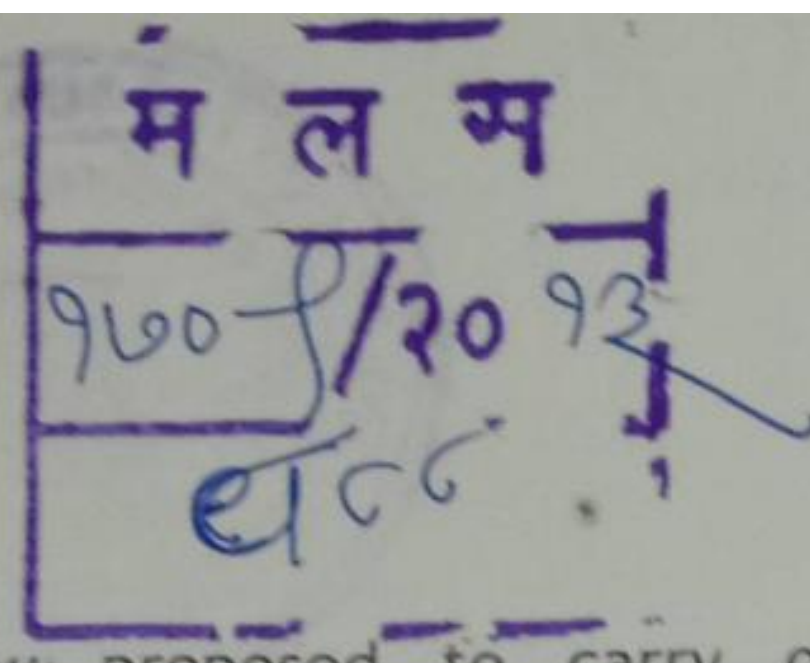 म ल म
१७०५/२० १३
ध ८८
proposed to carry